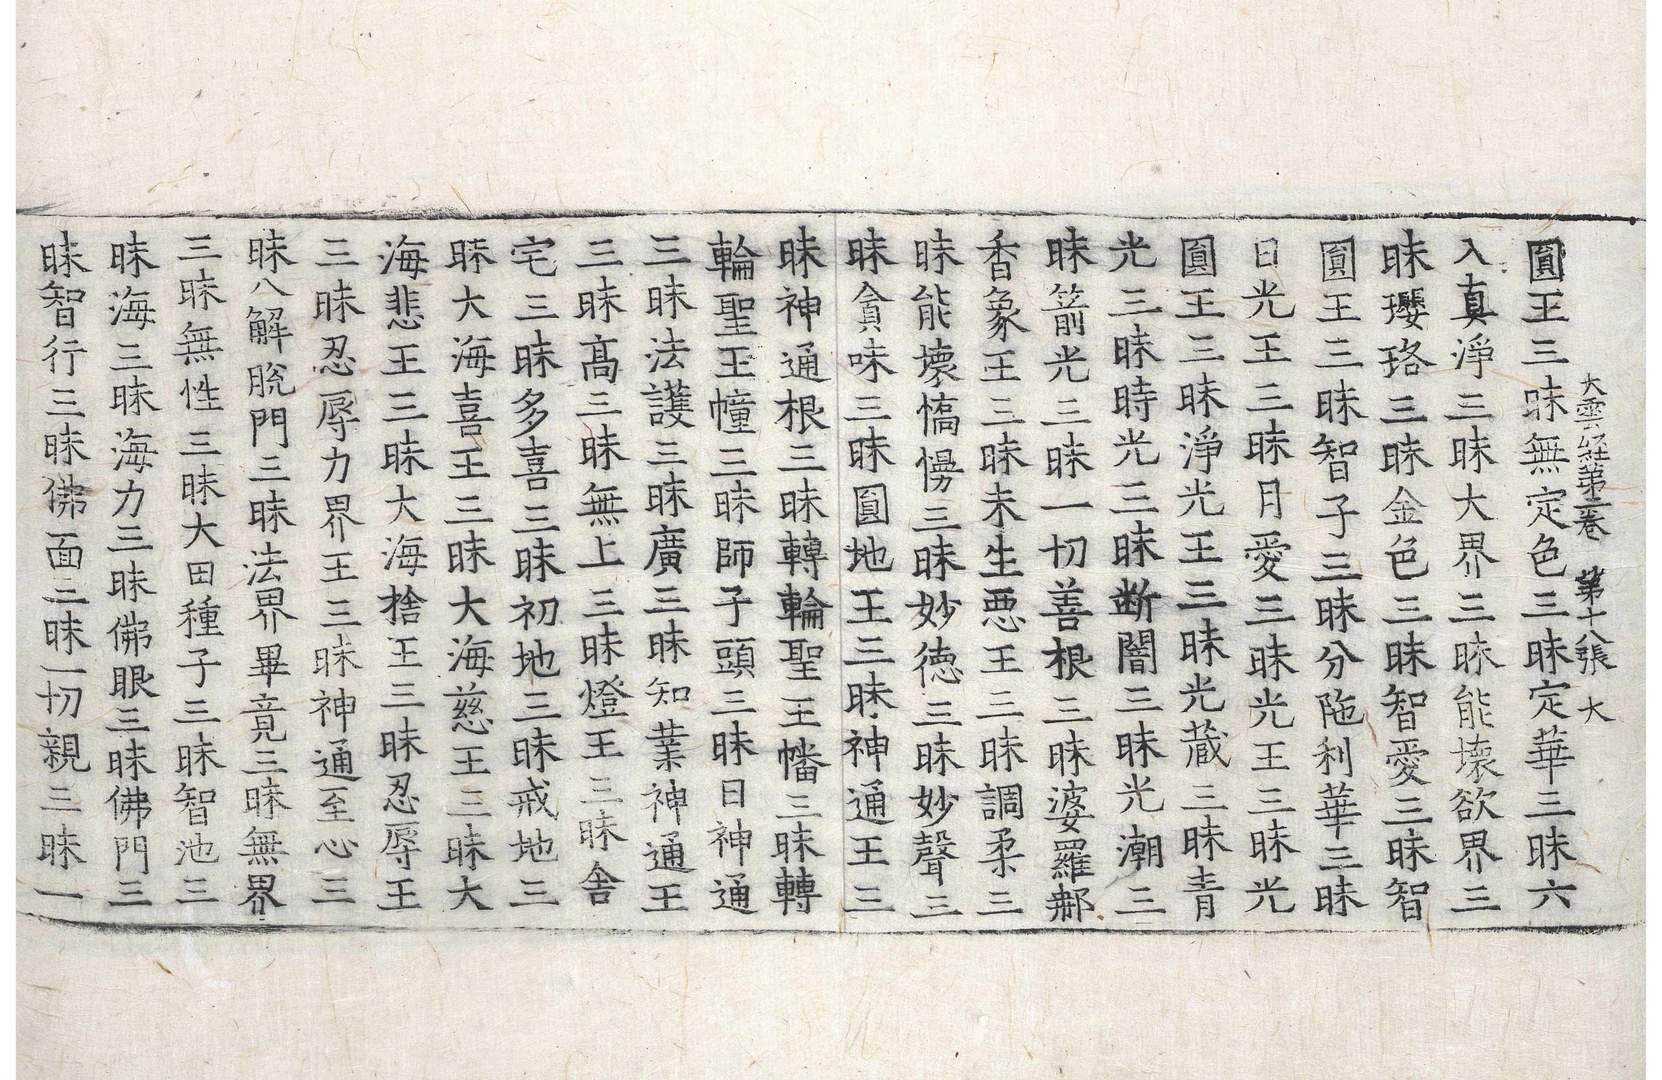 大雲経苐二卷　苐十八張　大
圓王三昧無定色三昧定華三昧六
入真淨三昧大界三昧能壞欲界三
昧瓔珞三昧金色三昧智愛三昧智
圓王三昧智子三昧分陁利華三昧
日光王三昧月愛三昧光王三昧光
圓王三昧淨光王三昧光藏三昧青
光三昧時光三昧断闇三昧光潮三
昧箭光三昧一切善根三昧婆羅
香象王三昧未生惡王三昧調柔三
昧能壞憍慢三昧妙德三昧妙聲三
昧貪味三昧圓地王三昧神通王三
昧神通根三昧轉輪聖王幡三昧轉
輪聖王幢三昧師子頭三昧日神通
三昧法護三昧廣三昧知業神通王
三昧髙三昧無上三昧燈王三昧舍
宅三昧多喜三昧初地三昧戒地三
昧大海喜王三昧大海慈王三昧大
海悲王三昧大海捨王三昧忍辱王
三昧忍辱力界王三昧神通至心三
昧八解脫門三昧法界畢竟三昧無界
三昧無性三昧大田種子三昧智池三
昧海三昧海力三昧佛眼三昧佛門三
昧智行三昧佛面三昧一切親三昧一